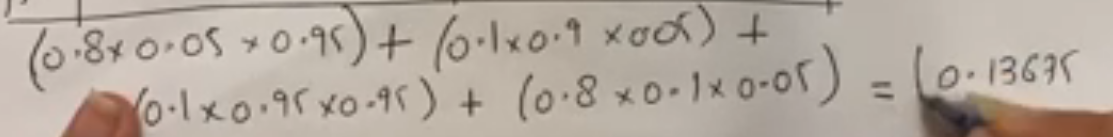 (0.8x0.05x0.95)+(0.1x0.9x005)+
(0.1x0.95x0.95)+(0.8x0.1x0.05) = (0.13675